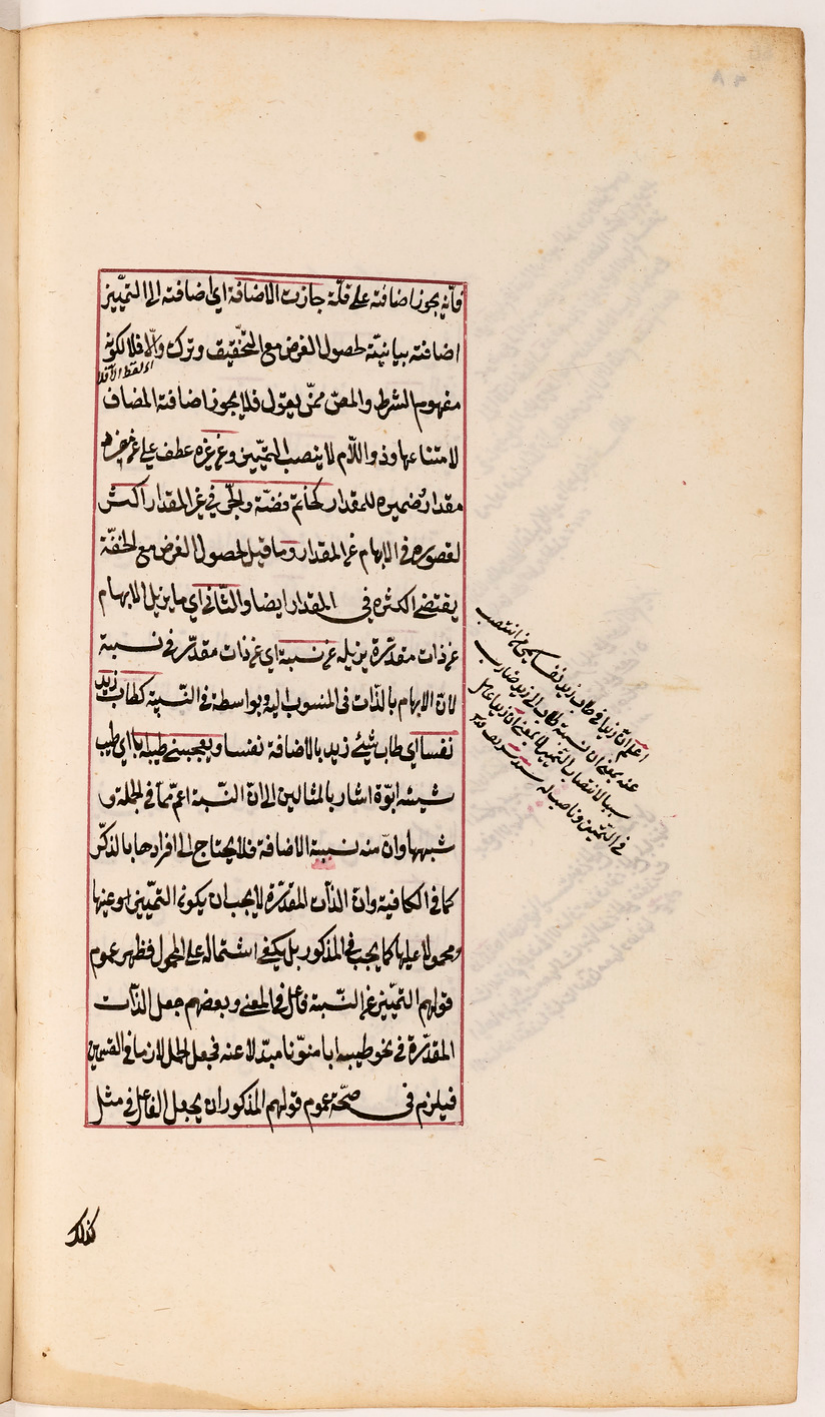 فانه يجوز اضافته على قلّة جازت الاضافة اى اضافته الى التمييز
اضافته بيانيّة لحصول الغرض مع التخفيف وترك والّا فلا لكونه
مفهوم الشرط والمعنى يقول فلا يجوز اضافة المضاف
لامتناعها وذو اللّام لا ينصب التمييز وعن غيره عطف على عن
مقدار ضميره للمقدار كخاتم فضّة والجرّ فى غير المقدار اكثر
لقصوره فى الابهام عن المقدار وما قيل لحصول الغرض مع الخفّة
يقتضى الكثرة فى المقدار ايضا والثّانى اى ما يزيل الابهام
عن ذات مقدّرة يزيله عن نسبة اى عن ذات مقدّر فى نسبة
لانّ الابهام بالذّات فى المنسوب اليه وبواسطة فى النّسبة كطاب زيد
نفسا اى طاب شيئ زيد بالاضافة نفسا ويعجبنى طيبه ابا اى طيب
شيئه ابوّة اشار بالمثالين الى انّ النّسبة اعمّ ممّا فى الجملة و
شبهها وانّ منه نسبة الاضافة فلا يحتاج الى افرادها بالذكر
كما فى الكافية وانّ الذّات المقدّرة لا يجب ان يكون التمييز عينها
ومحمولا عليها كما يجب فى المذكور بل يكفى اشتماله على المحمول فظهر عموم
قولهم التمييز عن النّسبة فاعل فى المعنى وبعضهم جعل الذّات
المقدّرة فى نحو طيبه ابا منوّنا مبتدلا عنه فجعل الحمل لازما فى القسمين
فيلزم فى صحّة عموم قولهم المذكور ان يجعل الفاعل فى مثل
كذلك
اعلم انّ زيدا فى طاب زيد نفسا
عنه بمعنى ان نسبة طاب الى زيد
سببا لانتصاب التمييز لا بمعنى ان زيدا عامل
فى التمييز وناصب له